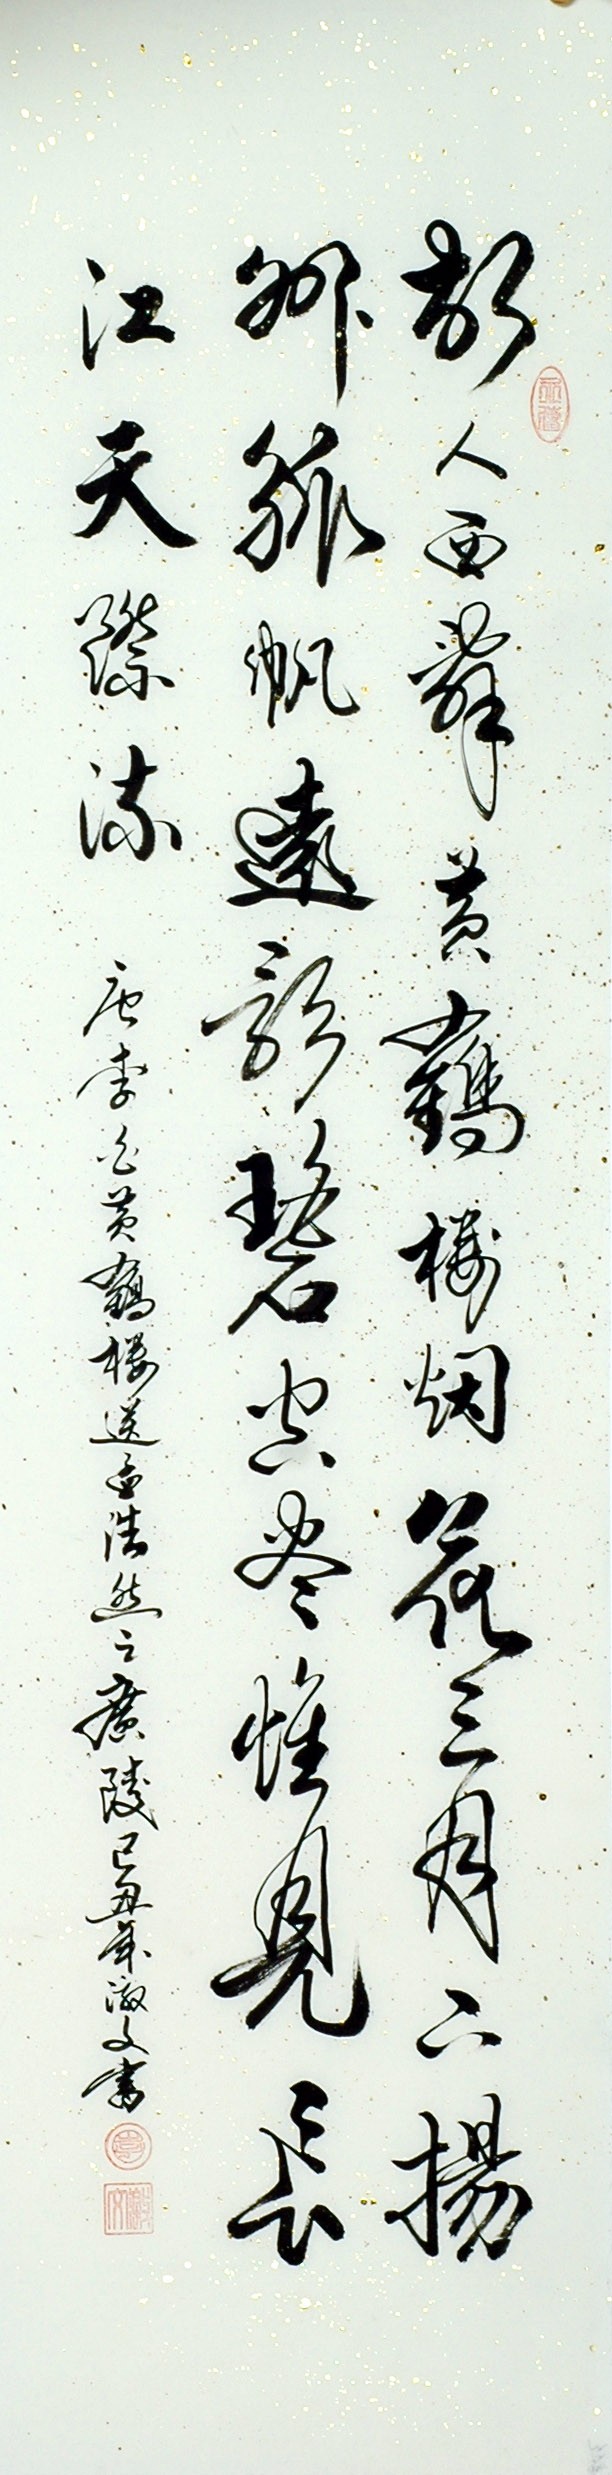 故人西辭黄鶴樓烟花三月下揚
州孤帆遠影碧空尽惟見長
江天際流
唐李白黄鶴樓送孟浩然之廣陵己丑年澂文書